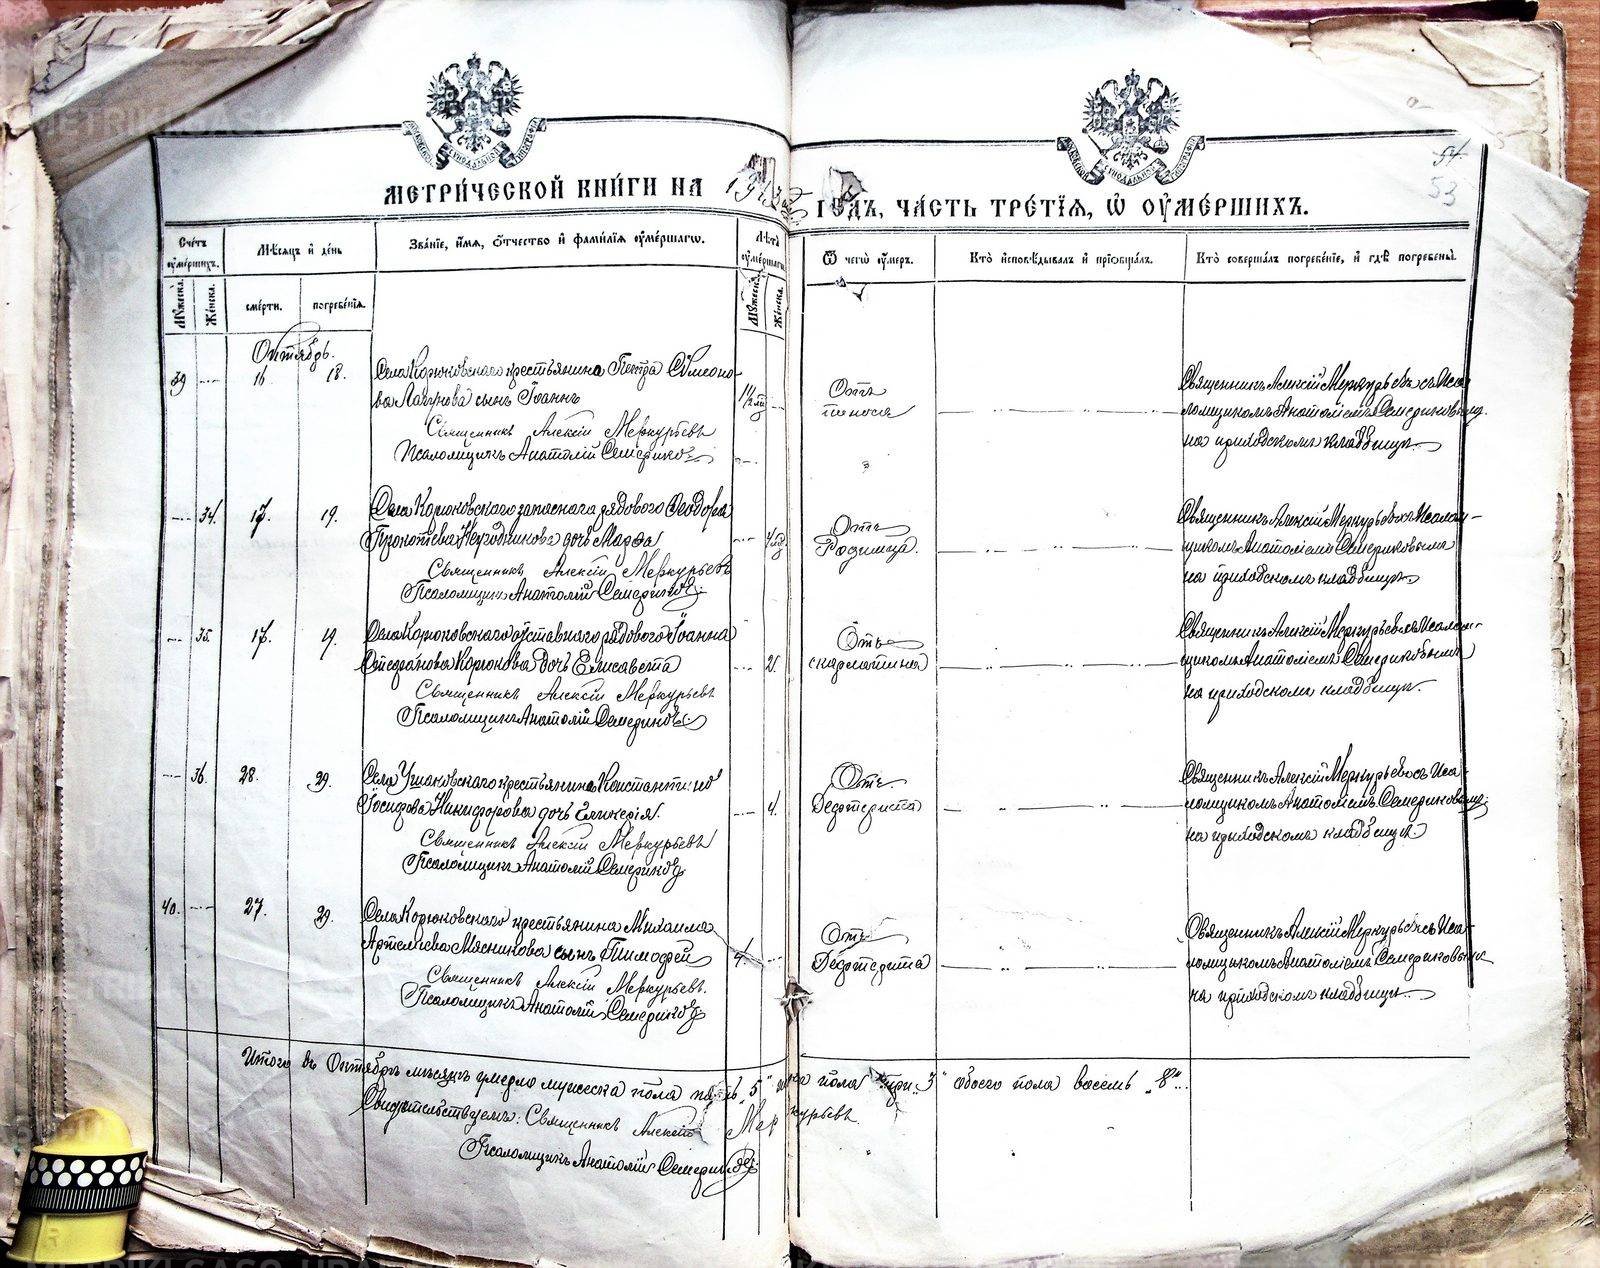 МЕТРИ́ЧЕСКОЙ КНИ́ГИ НА 1913 ГОДЪ, ЧА́СТЬ ТРЕ́ТІѦ, Ѡ ОУМЕ́РШИХЪ.
54.
53
Сче́тъ оуме́ршихъ.
Мѣсяцъ и де́нь
Зва́ніе, и́мя, о́тчество и фами́лія оуме́ршагѡ.
Лѣта оуме́ршагѡ
Ѿ чегѡ̀ оу́меръ.
Кто̀ исповѣ́дывалъ и прїобща́лъ.
Кто̀ соверша́лъ погребе́ніе, и гдѣ̀ погребены̀.
Мꙋ́жеска. Же́нска. сме́рти. погребе́нія. Мꙋ́жеска. Же́нска.
Октябрь.
39 16 18. Села Корюковского крестьянина Петра Симеоно-
ва Лагунова сынъ Іоаннъ 1½ лѣ
Священникъ Алексій Меркурьевъ
Псаломщикъ Анатолій Семериковъ
Отъ
поноса
Священникъ Алексій Меркурьевъ съ Псал
ломщикомъ Анатоліемъ Семериковымъ
на приходскомъ кладбищѣ.
34. 17. 19. Села Корюковского запасного рядового Ѳеодора
Прокопіева Негодникова дочь Марѳа
Священникъ Алексій Меркурьевъ
Псаломщикъ Анатолій Семериковъ
Отъ
Родимца.
Священникъ Алексій Меркурьевъ съ Псалом-
щикомъ Анатоліемъ Семериковымъ
на приходскомъ кладбищѣ.
35. 17. 19. Села Корюковского отставного рядового Іоанна
Стефанова Корюкова дочь Елисавета 2.
Священникъ Алексій Меркурьевъ
Псаломщикъ Анатолій Семериковъ
Отъ
скарлатина
Священникъ Алексій Меркурьевъ съ Псалом-
щикомъ Анатоліемъ Семериковымъ
на приходскомъ кладбищѣ.
36. 28. 29. Села Ушаковского крестьянина Константина
Іосифова Никифорова дочь Гликерія. 4.
Священникъ Алексій Меркурьевъ
Псаломщикъ Анатолій Семериковъ
Отъ
Дефтерита
Священникъ Алексій Меркурьевъ съ Пса-
ломщикомъ Анатоліемъ Семериковымъ
на приходскомъ кладбищѣ.
40. 27. 29. Села Корюковского крестьянина Михаила
Артемьева Мясникова сынъ Тимофей 4.
Священникъ Алексій Меркурьевъ.
Псаломщикъ Анатолій Семериковъ
Отъ
Дефтерита
Священникъ Алексій Меркурьевъ съ Пса-
ломщикомъ Анатоліемъ Семериковымъ
на приходскомъ кладбищѣ.
Итого въ Октябрѣ мѣсяцѣ умерло мужеска пола пять „5" женска пола три „3" обоего пола восемь „8".
Свидѣтельствуемъ: Священникъ Алексій Меркурьевъ.
Псаломщикъ Анатолій Семериковъ